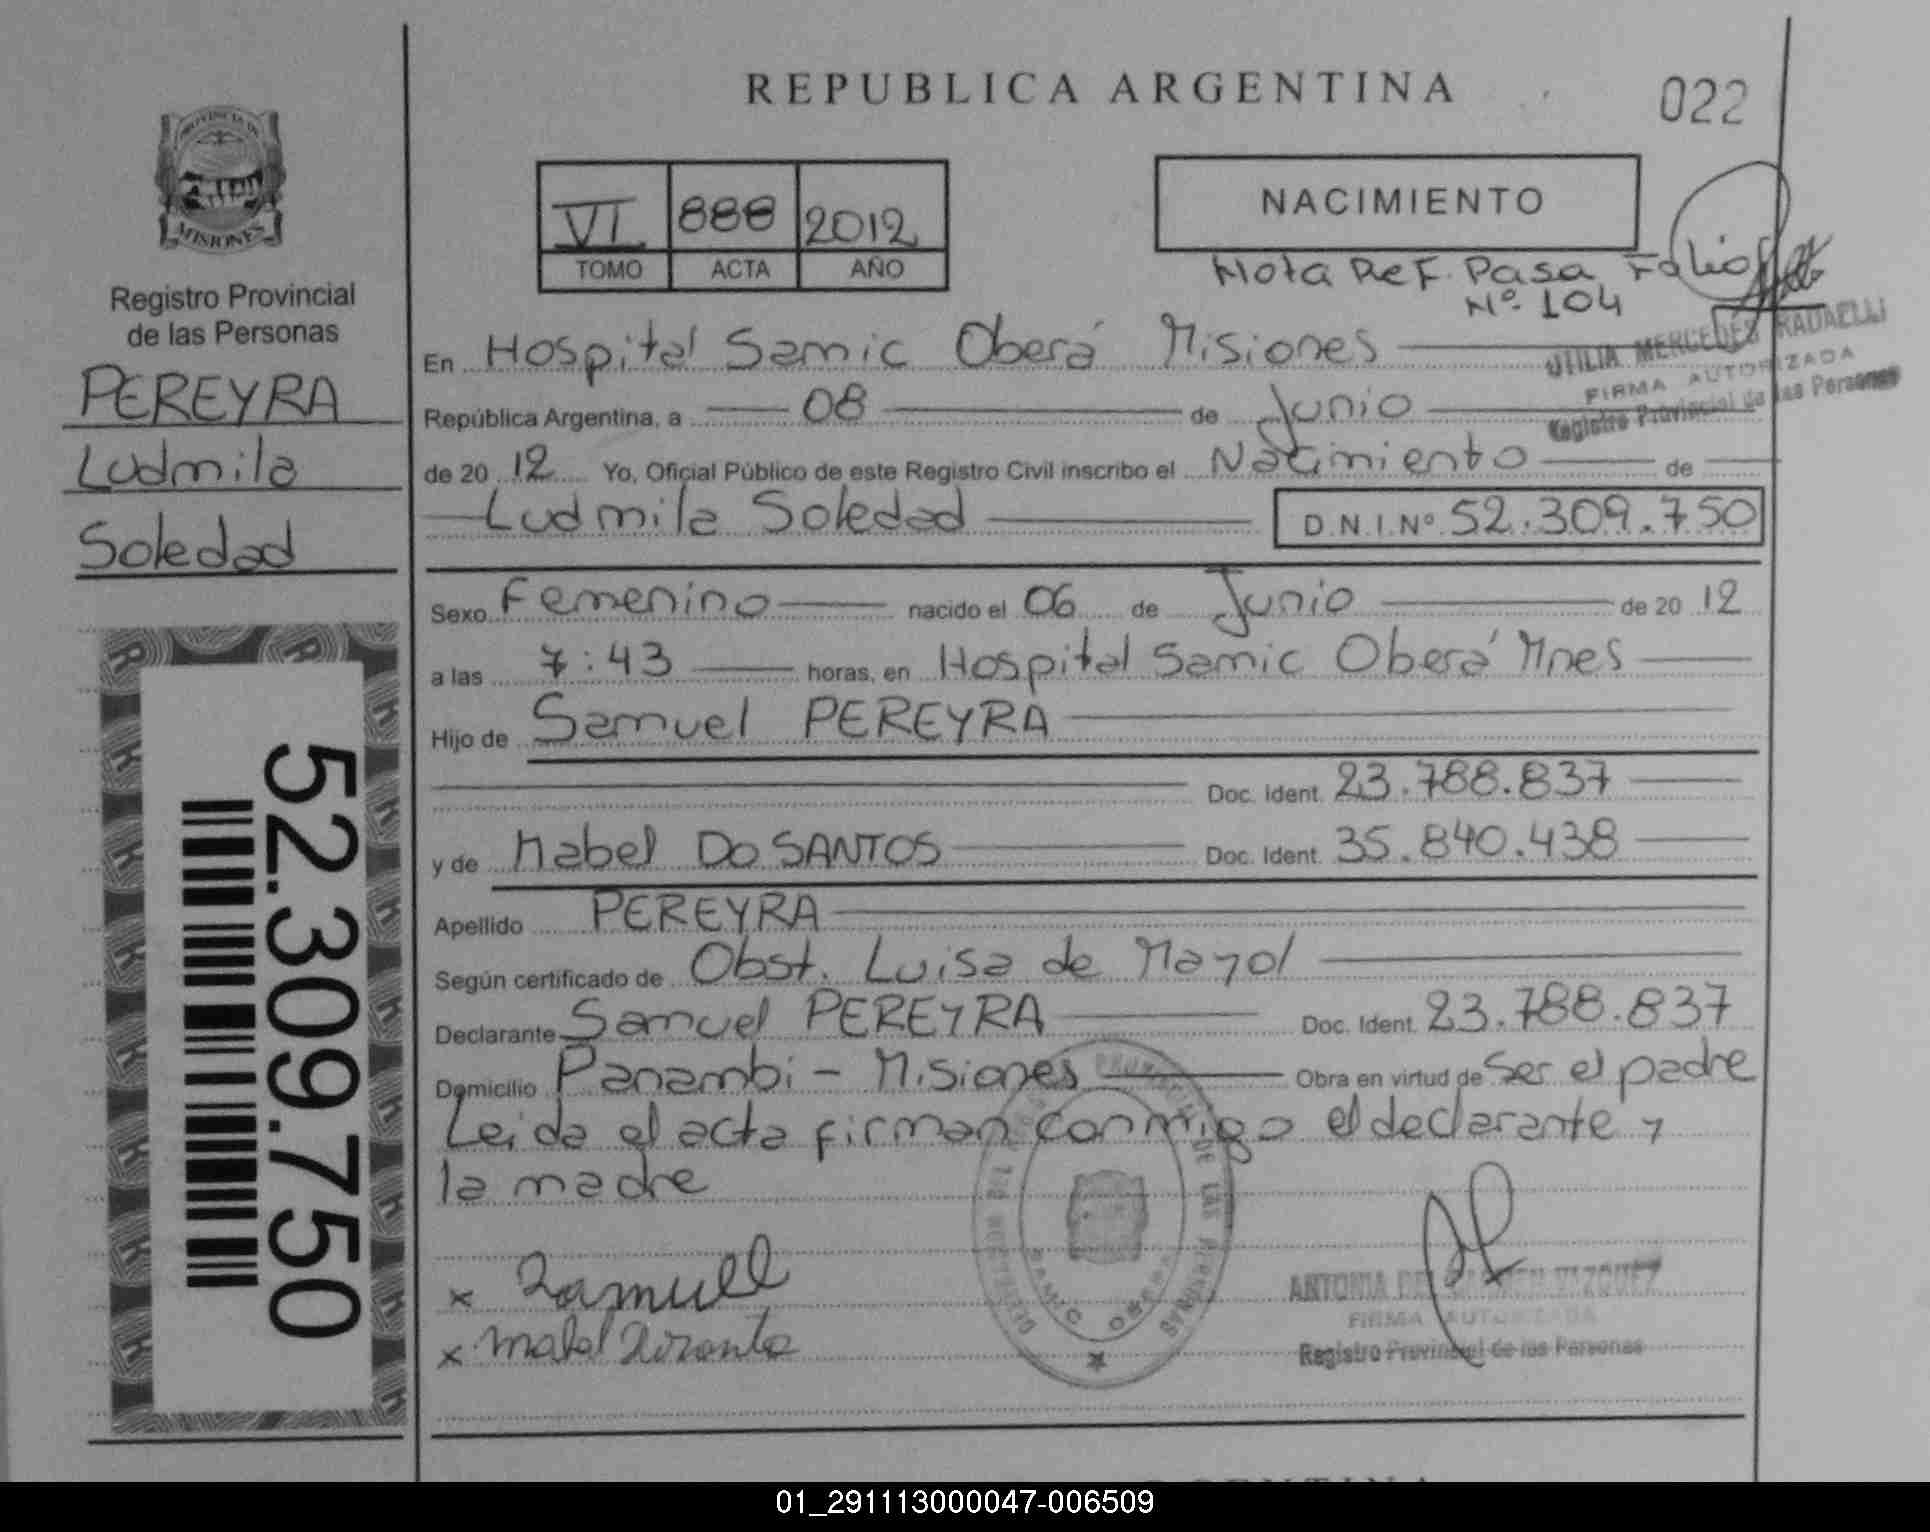 REPUBLICA ARGENTINA
022
PROVINCIA DE
MISIONES
Registro Provincial
de las Personas
PEREYRA
Ludmila
Soledad
52.309.750
VI 888 2012
TOMO ACTA AÑO
NACIMIENTO
Nota Ref. Pasa Folio
Nº 104
OTILIA MERCEDES RADAELLI
FIRMA AUTORIZADA
Registro Provincial de las Personas
En Hospital Samic Oberá Misiones
República Argentina, a 08 de Junio
de 20 12 Yo, Oficial Público de este Registro Civil inscribo el Nacimiento de
Ludmila Soledad D.N.I.Nº 52.309.750
Sexo Femenino nacido el 06 de Junio de 20 12
a las 7:43 horas, en Hospital Samic Oberá Mnes
Hijo de Samuel PEREYRA
Doc. Ident. 23.788.837
y de Mabel DO SANTOS Doc. Ident. 35.840.438
Apellido PEREYRA
Según certificado de Obst. Luisa de Mayol
Declarante Samuel PEREYRA Doc. Ident. 23.788.837
Domicilio Panambi - Misiones Obra en virtud de Ser el padre
Leida el acta firman conmigo el declarante y
la madre
x Zamuel
x Mabel
ANTONIA DEL CARMEN VAZQUEZ
FIRMA AUTORIZADA
Registro Provincial de las Personas
01_291113000047-006509